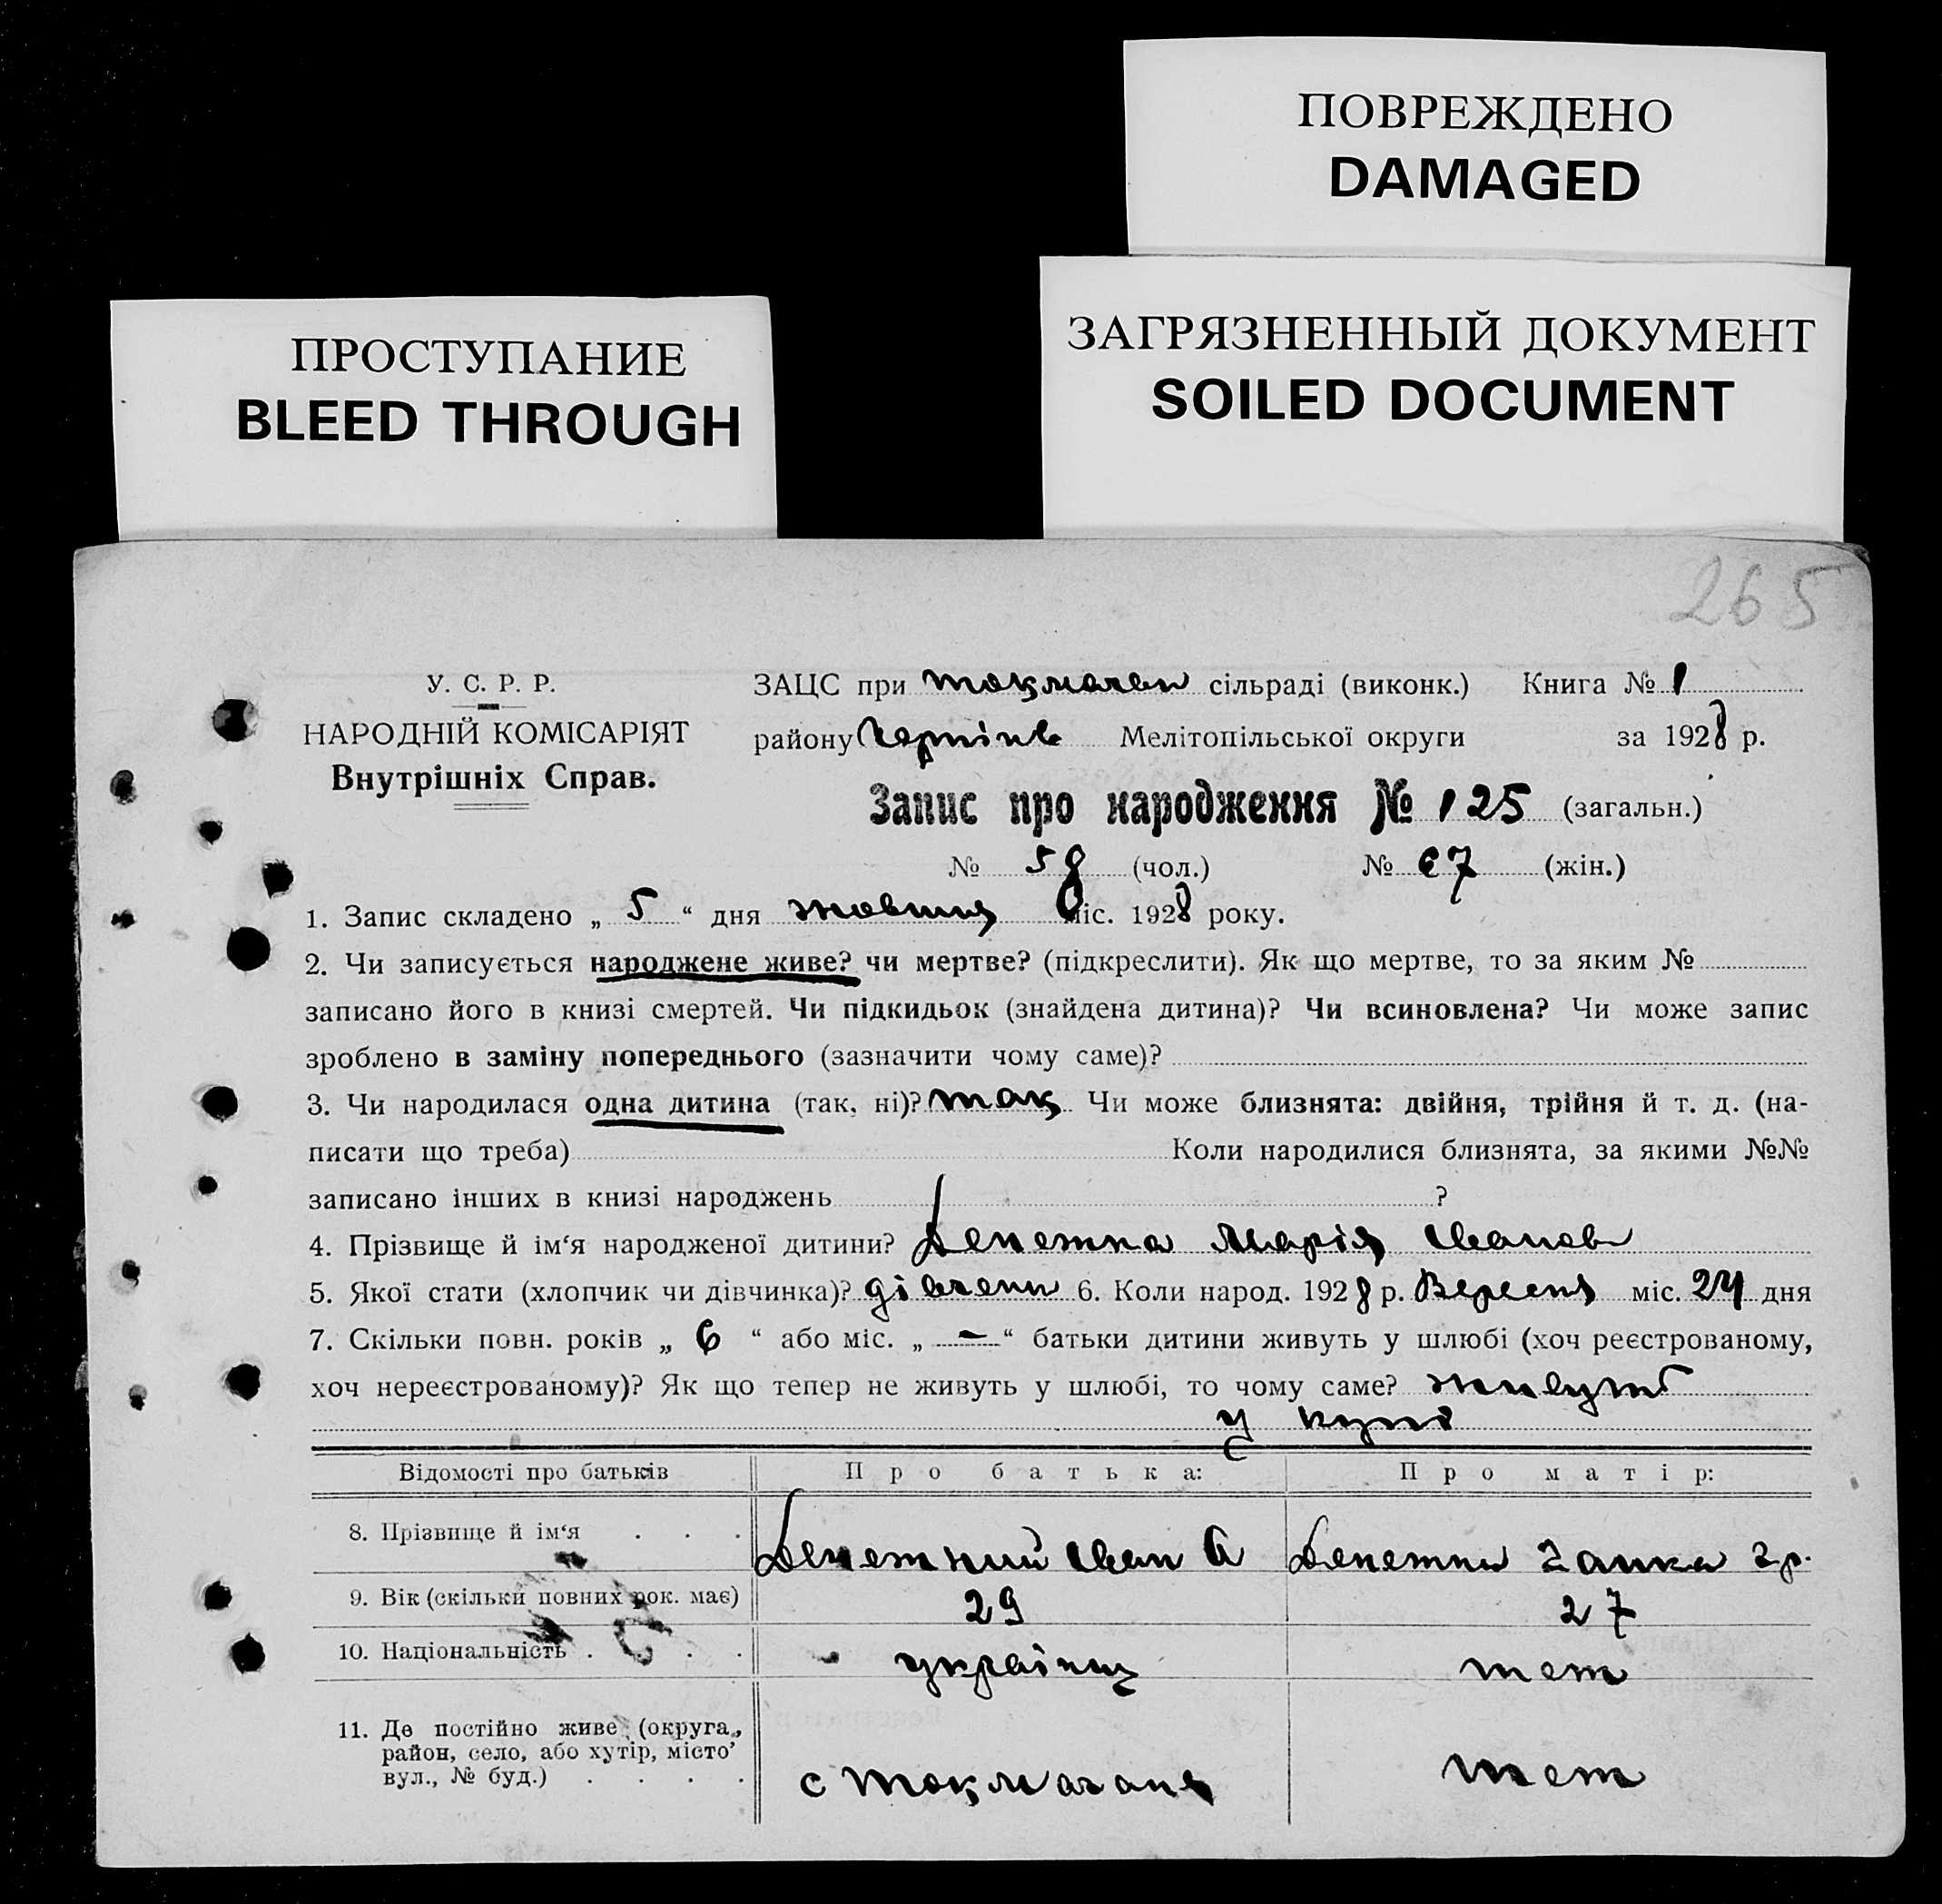 ПОВРЕЖДЕНО
DAMAGED
ПРОСТУПАНИЕ
BLEED THROUGH
ЗАГРЯЗНЕННЫЙ ДОКУМЕНТ
SOILED DOCUMENT
265
У. С. Р. Р.
НАРОДНІЙ КОМІСАРІЯТ
Внутрішніх Справ.
ЗАЦС при токмачан сільраді (виконк.) Книга № 1
району Мелітопільської округи за 1928 р.
Запис про народження № 125 (загальн.)
№ 58 (чол.) № 67 (жін.)
1. Запис складено „ 5 “ дня жовтня міс. 1928 року.
2. Чи записується народжене живе? чи мертве? (підкреслити). Як що мертве, то за яким №
записано його в книзі смертей. Чи підкидьок (знайдена дитина)? Чи всиновлена? Чи може запис
зроблено в заміну попереднього (зазначити чому саме)?
3. Чи народилася одна дитина (так, ні)? так Чи може близнята: двійня, трійня й т. д. (на-
писати що треба) Коли народилися близнята, за якими №№
записано інших в книзі народжень ?
4. Прізвище й ім‘я народженої дитини? Денежна Марія Иванов
5. Якої стати (хлопчик чи дівчинка)? дівчени 6. Коли народ. 1928 р. Вересня міс. 24 дня
7. Скільки повн. років „ 6 “ або міс. „ — “ батьки дитини живуть у шлюбі (хоч реєстрованому,
хоч нереєстрованому)? Як що тепер не живуть у шлюбі, то чому саме? живуть
у купі
Відомості про батьків Про батька: Про матір:
8. Прізвище й ім‘я . . . Денежний Иван А Денежна Ганка Гр.
9. Вік (скільки повних рок. має) 29 27
10. Національність . . . . українц теж
11. Де постійно живе (округа,
район, село, або хутір, місто
вул., № буд.) . . . . с Токмачани теж